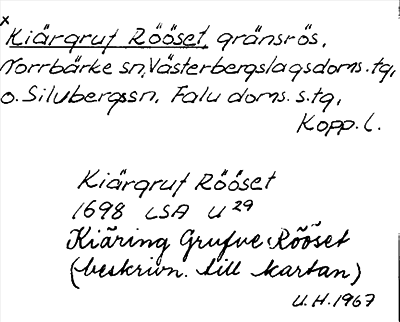 x
Kiärgruf Rööset, gränsrös,
Norrbärke sn, Västerbergslagsdoms. tg,
o. Silvbergssn, Falu doms. s. tg,
Kopp. l.
Kiärgruf Rööset
1698 LSA U 29
Kiäring Grufve Rööset
(beskrivn. till kartan)
U.H. 1967